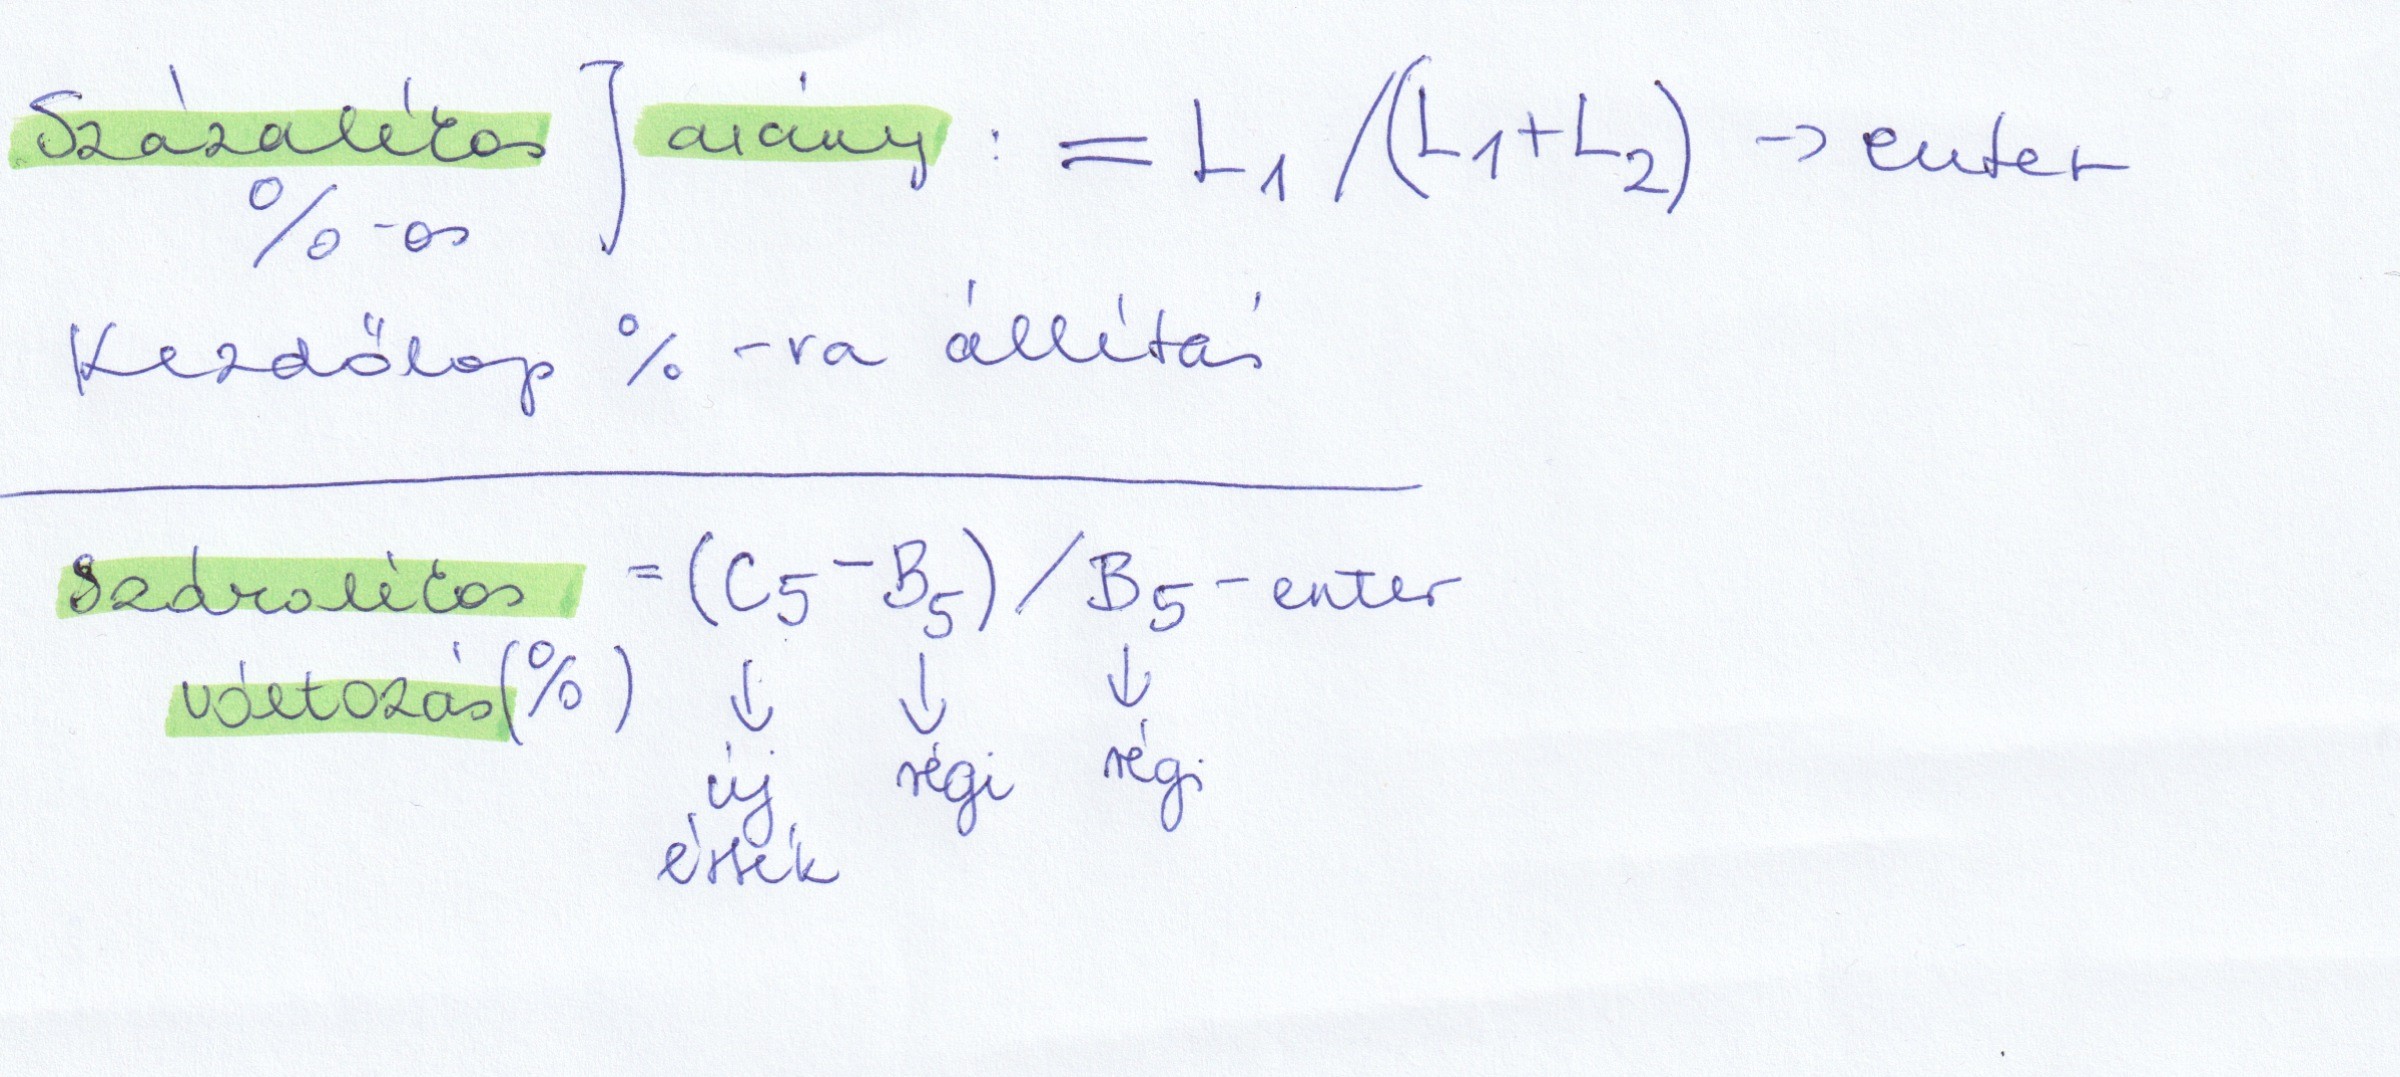 Százalékos ] arány : = L1 / (L1+L2) → enter
%-os
Kezdőlap % -ra állítás
Százalékos = (C5 - B5) / B5 - enter
változás (%) ↓ ↓ ↓
új régi régi
érték